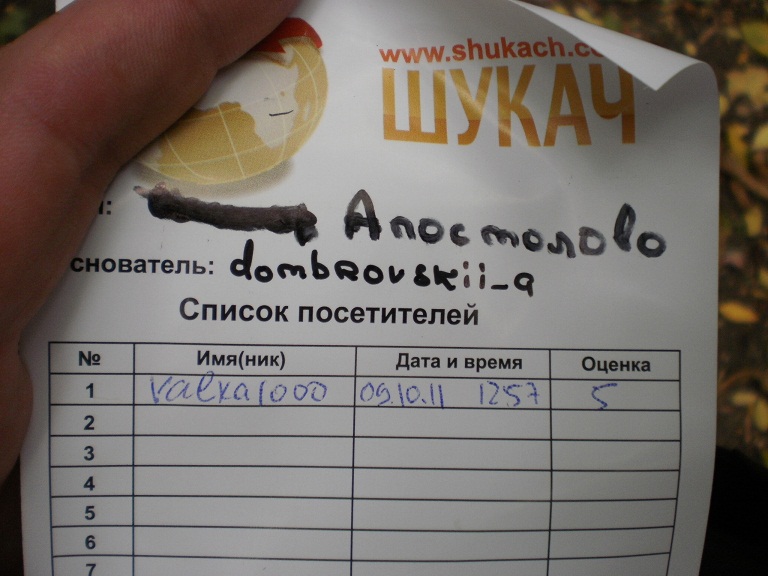 www.shukach.co
ШУКАЧ
Апостолово
снователь: dombrovskii_a
Список посетителей
№ Имя(ник) Дата и время Оценка
1 valxa1000 09.10.11 1257 5
2
3
4
5
6
7